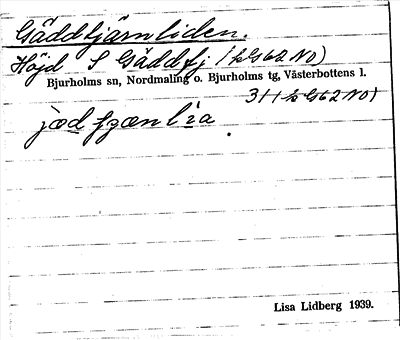 Gäddtjärnliden.
Höjd S Gäddtj (kG62NO)
Bjurholms sn, Nordmaling o. Bjurholms tg, Västerbottens l.
311 kG62NO)
Lisa Lidberg 1939.